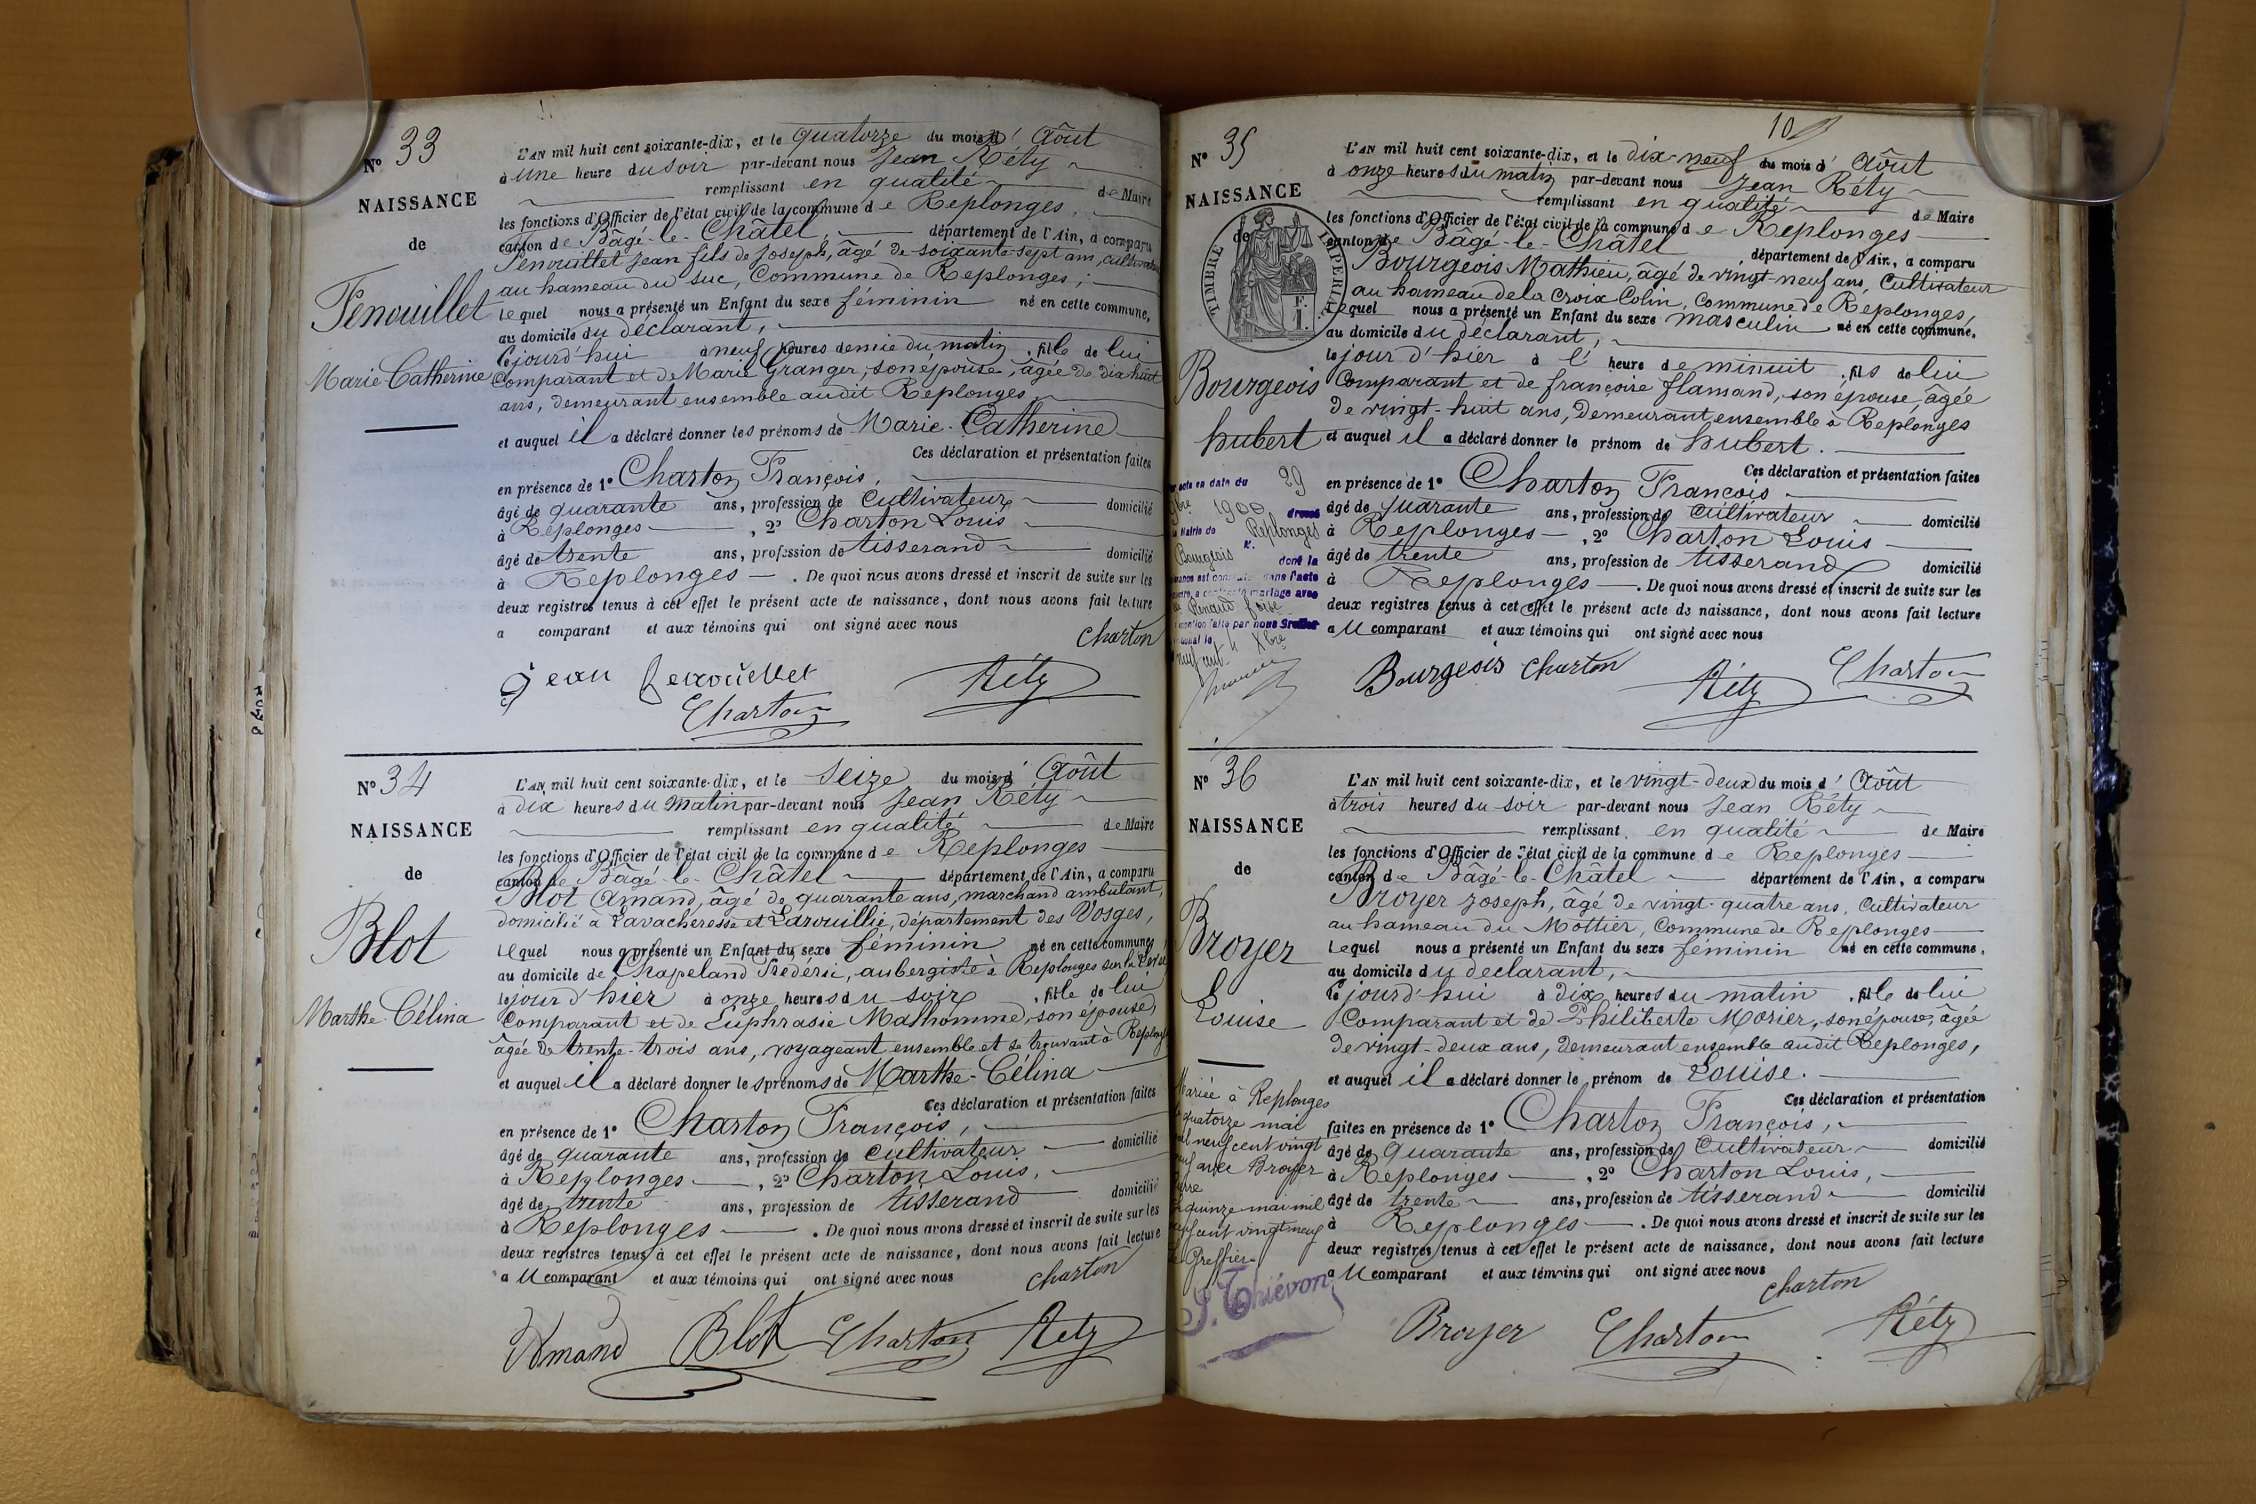 Nº 33
NAISSANCE
de
Fenouillet
Marie Catherine
L'AN mil huit cent soixante-dix, et le quatorze du mois d' Août
à une heure du soir par-devant nous Jean Réty
remplissant en qualité de Maire
les fonctions d'Officier de l'état civil de la commune de Replonges,
canton de Bâgé-le-Châtel, département de l'Ain, a comparu
Fenouillet Jean fils de Joseph, âgé de soixante-sept ans, cultivateur
au hameau du Suc, Commune de Replonges;
lequel nous a présenté un Enfant du sexe féminin né en cette commune,
au domicile du déclarant,
cejourd'hui à neuf heures demie du matin, fille de lui
Comparant et de Marie Granger, son épouse, âgée de dix huit
ans, demeurant ensemble audit Replonges
et auquel il a déclaré donner les prénoms de Marie-Catherine
Ces déclaration et présentation faites
en présence de 1º Charton François,
âgé de quarante ans, profession de Cultivateur domicilié
à Replonges, 2º Charton Louis
âgé de trente ans, profession de tisserand domicilié
à Replonges. De quoi nous avons dressé et inscrit de suite sur les
deux registres tenus à cet effet le présent acte de naissance, dont nous avons fait lecture
a comparant et aux témoins qui ont signé avec nous
Charton
Jean Fenouillet
Charton
Réty
Nº 34
NAISSANCE
de
Blot
Marthe-Célina
L'AN mil huit cent soixante-dix, et le seize du mois d' Août
à dix heures du matin par-devant nous Jean Réty
remplissant en qualité de Maire
les fonctions d'Officier de l'état civil de la commune de Replonges
canton de Bâgé-le-Châtel département de l'Ain, a comparu
Blot Amand, âgé de quarante ans, marchand ambulant,
domicilié à Lavacheresse et Larouillie, département des Vosges,
lequel nous a présenté un Enfant du sexe féminin né en cette commune,
au domicile de Chapeland Frédéric, aubergiste à Replonges sur la
le jour d'hier à onze heures du soir, fille de lui
Comparant et de Euphrasie Malhomme, son épouse,
âgée de trente-trois ans, voyageant ensemble et se trouvant à Replonges
et auquel il a déclaré donner les prénoms de Marthe-Célina
Ces déclaration et présentation faites
en présence de 1º Charton François,
âgé de quarante ans, profession de Cultivateur domicilié
à Replonges, 2º Charton Louis,
âgé de trente ans, profession de tisserand domicilié
à Replonges. De quoi nous avons dressé et inscrit de suite sur les
deux registres tenus à cet effet le présent acte de naissance, dont nous avons fait lecture
au comparant et aux témoins qui ont signé avec nous
Charton
Amand Blot
Charton
Réty
10
Nº 35
NAISSANCE
de
TIMBRE IMPERIAL
Bourgeois
hubert
L'AN mil huit cent soixante-dix, et le dix-neuf du mois d' Août
à onze heures du matin par-devant nous Jean Réty
remplissant en qualité de Maire
les fonctions d'Officier de l'état civil de la commune de Replonges
canton de Bâgé-le-Châtel département de l'Ain, a comparu
Bourgeois Mathieu, âgé de vingt-neuf ans, Cultivateur
au hameau de la Croix Colin, Commune de Replonges,
lequel nous a présenté un Enfant du sexe masculin né en cette commune,
au domicile du déclarant,
le jour d'hier à l' heure de minuit, fils de lui
Comparant et de françoise flamand, son épouse, âgée
de vingt-huit ans, demeurant ensemble à Replonges
et auquel il a déclaré donner le prénom de hubert.
Ces déclaration et présentation faites
en présence de 1º Charton François
âgé de quarante ans, profession de Cultivateur domicilié
à Replonges, 2º Charton Louis
âgé de trente ans, profession de tisserand domicilié
à Replonges. De quoi nous avons dressé et inscrit de suite sur les
deux registres tenus à cet effet le présent acte de naissance, dont nous avons fait lecture
au comparant et aux témoins qui ont signé avec nous
acte en date du 29
1900 dressé
Mairie de Replonges
Bourgeois dont la
est dans l'acte
mariage avec
Renaud
mention faite par nous Greffier
4 Xbre
Bourgeois Charton
Réty
Charton
Nº 36
NAISSANCE
de
Broyer
Louise
L'AN mil huit cent soixante-dix, et le vingt-deux du mois d' Août
à trois heures du soir par-devant nous Jean Réty
remplissant en qualité de Maire
les fonctions d'Officier de l'état civil de la commune de Replonges
canton de Bâgé-le-Châtel département de l'Ain, a comparu
Broyer Joseph, âgé de vingt-quatre ans, Cultivateur
au hameau du Mottier, Commune de Replonges
lequel nous a présenté un Enfant du sexe féminin né en cette commune,
au domicile du déclarant,
cejourd'hui à dix heures du matin, fille de lui
Comparant et de Philiberte Morier, son épouse, âgée
de vingt-deux ans, demeurant ensemble audit Replonges,
et auquel il a déclaré donner le prénom de Louise.
Ces déclaration et présentation
faites en présence de 1º Charton François,
âgé de Quarante ans, profession de Cultivateur domicilié
à Replonges, 2º Charton Louis,
âgé de trente ans, profession de tisserand domicilié
à Replonges. De quoi nous avons dressé et inscrit de suite sur les
deux registres tenus à cet effet le présent acte de naissance, dont nous avons fait lecture
au comparant et aux témoins qui ont signé avec nous
Mariée à Replonges
quatorze mai
mil neuf cent vingt
neuf avec Broyer
quinze mai mil
neuf cent vingt neuf
Le Greffier
J. Thiévon
Charton
Broyer
Charton
Réty